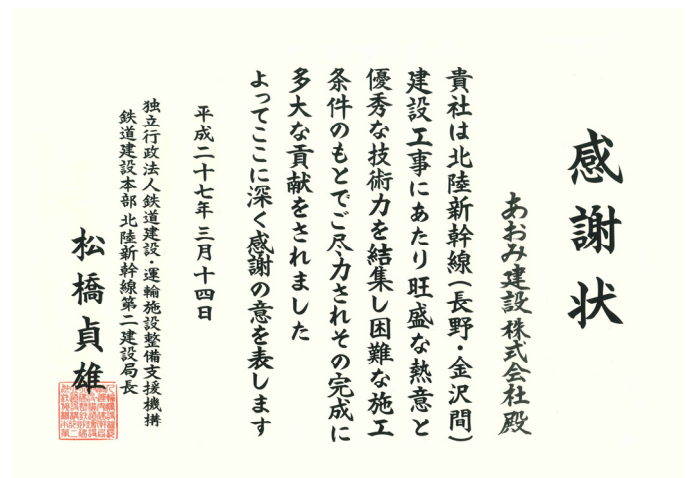 感謝状
あおみ建設株式会社殿
貴社は北陸新幹線(長野・金沢間)
建設工事にあたり旺盛な熱意と
優秀な技術力を結集し困難な施工
条件のもとでご尽力されその完成に
多大な貢献をされました
よってここに深く感謝の意を表します
平成二十七年三月十四日
独立行政法人鉄道建設・運輸施設整備支援機構
鉄道建設本部北陸新幹線第二建設局長
松橋貞雄